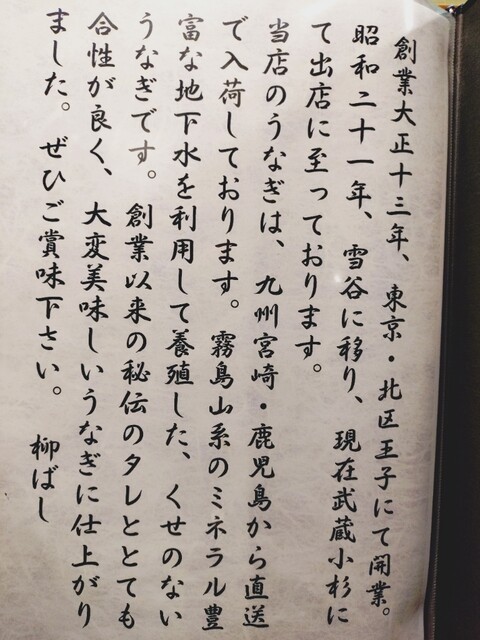 創業大正十三年、東京・北区王子にて開業。
昭和二十一年、雪谷に移り、現在武蔵小杉に
て出店に至っております。
当店のうなぎは、九州宮崎・鹿児島から直送
で入荷しております。霧島山系のミネラル豊
富な地下水を利用して養殖した、くせのない
うなぎです。創業以来の秘伝のタレととても
合性が良く、大変美味しいうなぎに仕上がり
ました。ぜひご賞味下さい。柳ばし